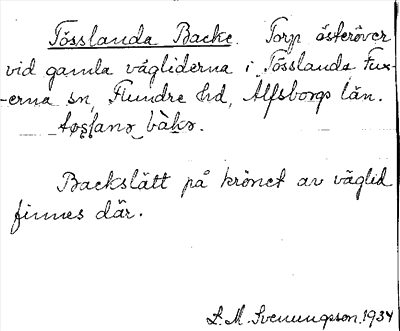 Tösslanda Backe. Torp österöver
vid gamla vägliderna i Tösslanda Fux-
-erna sn, Flundre hd, Älfsborgs län.
Backslätt på krönet av väglid
finnes där.
L. M. Svenungsson. 1934